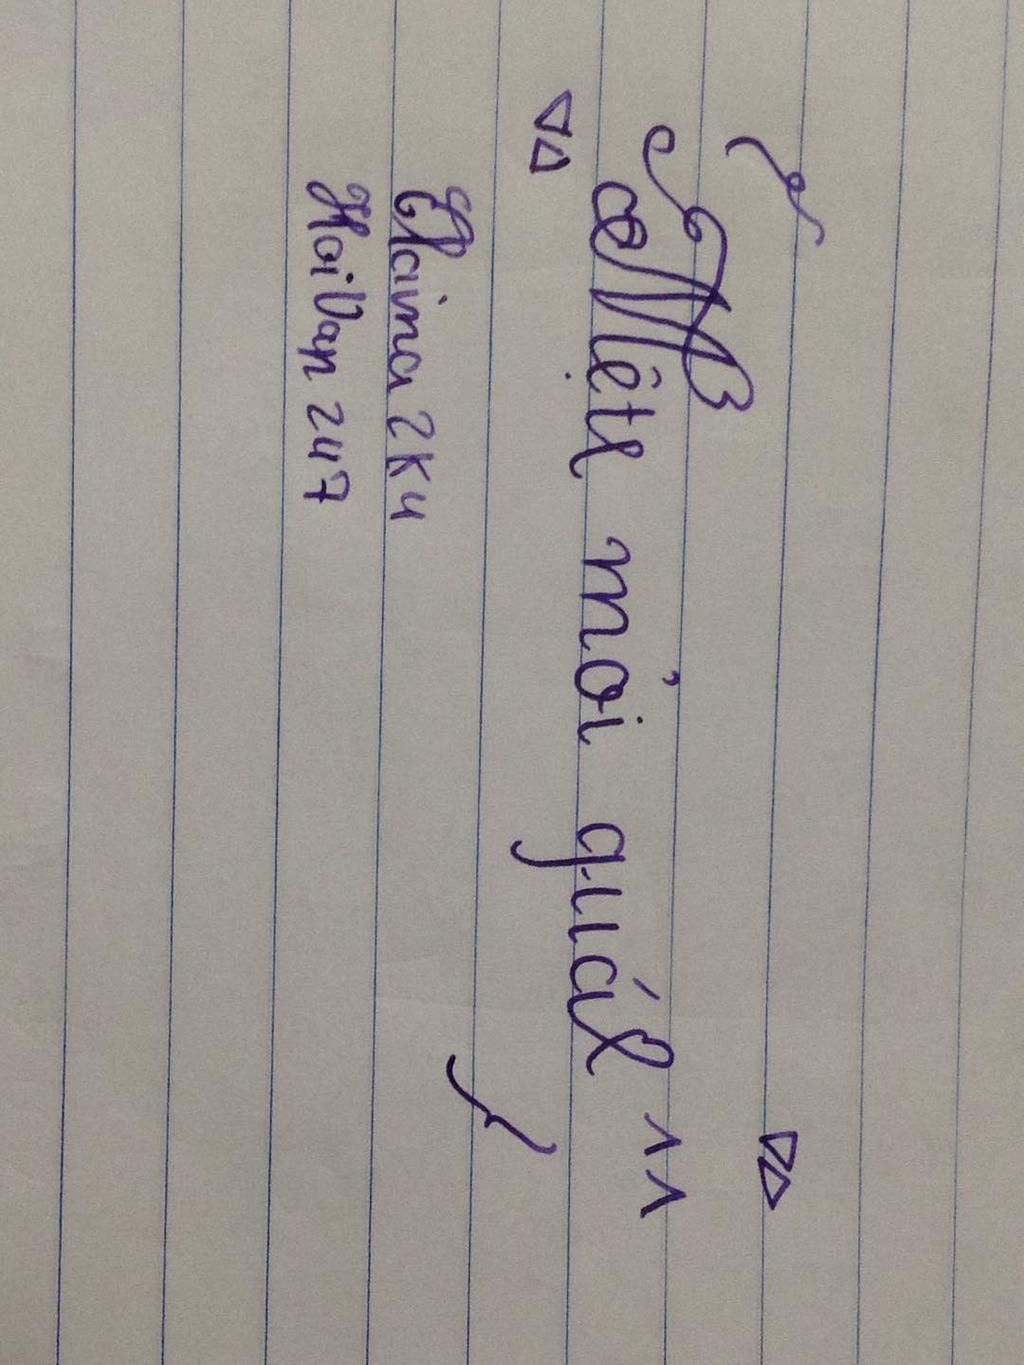 Mệtl mỏi quál ^^
Haima2k4
HoiVan247